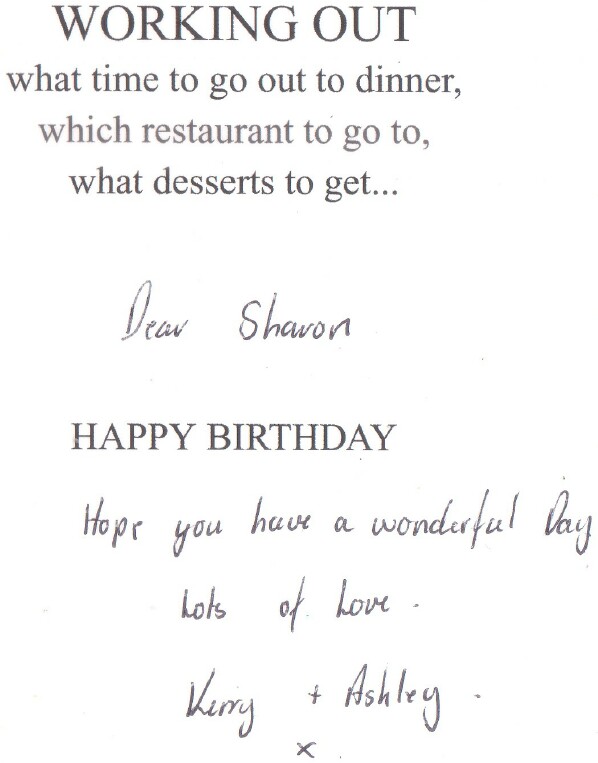 WORKING OUT
what time to go out to dinner,
which restaurant to go to,
what desserts to get...
Dear Sharon
HAPPY BIRTHDAY
Hope you have a wonderful Day
Lots of Love.
Kerry + Ashley.
x